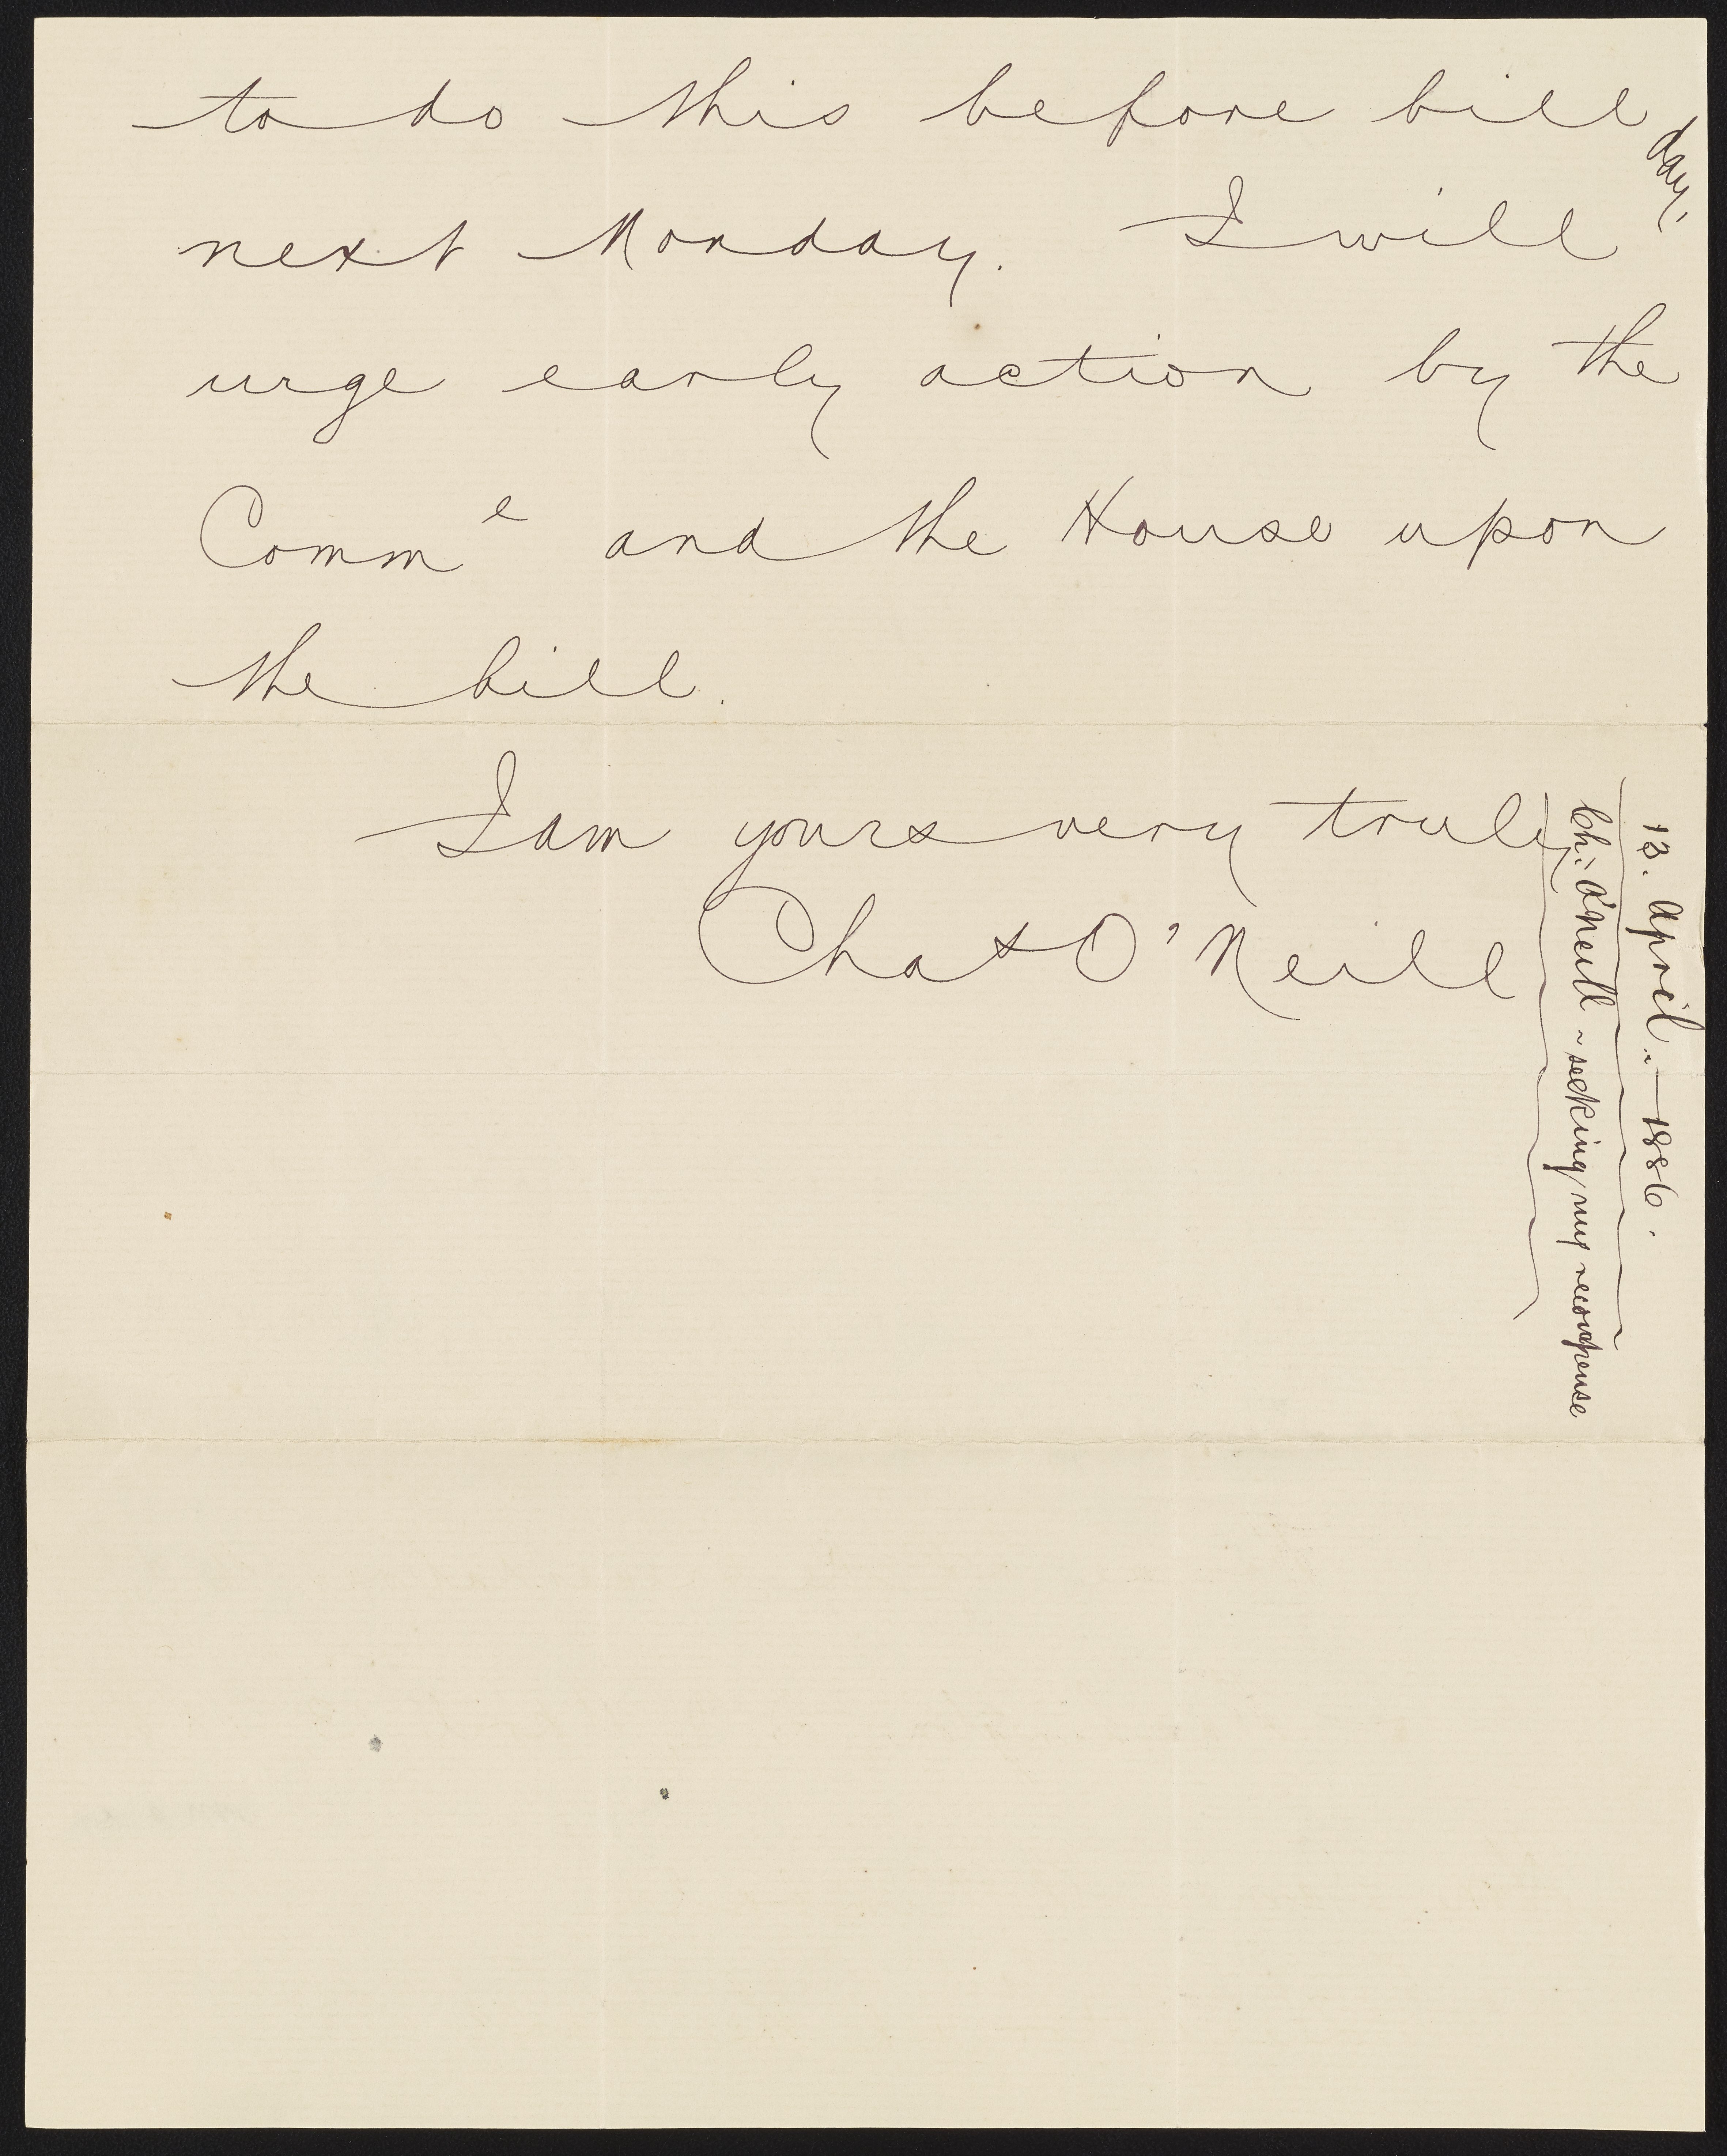 to do this before bill day,
next Monday. I will
urge early action by the
Comm e and the House upon
the bill.
I am yours very truly
Chas O'Neill
13. April. — 1886.
Ch: O'Neill ~ seeking my recompense